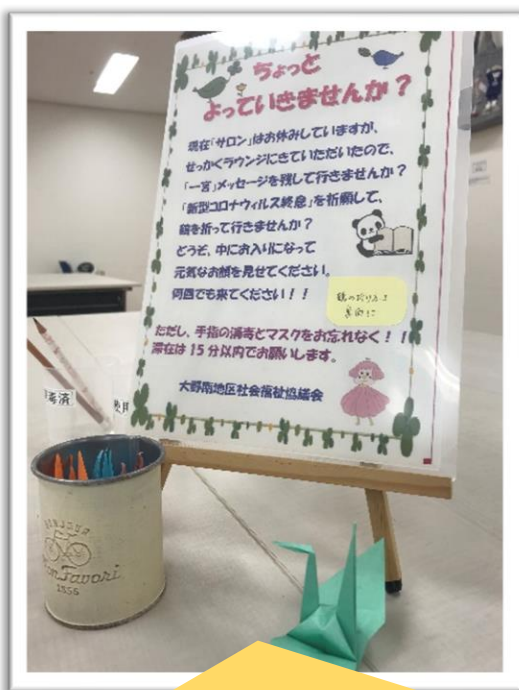 ちょっと
よっていきませんか？
現在「サロン」はお休みしていますが、
せっかくラウンジにきていただいたので、
「一言」メッセージを残して行きませんか？
「新型コロナウィルス終息」を祈願して、
鶴を折って行きませんか？
どうぞ、中にお入りになって
元気なお顔を見せてください。
何回でも来てください！！
ただし、手指の消毒とマスクをお忘れなく！！
滞在は15分以内でお願いします。
大野南地区社会福祉協議会
毒済
BONJOUR
Mon Favori
1956